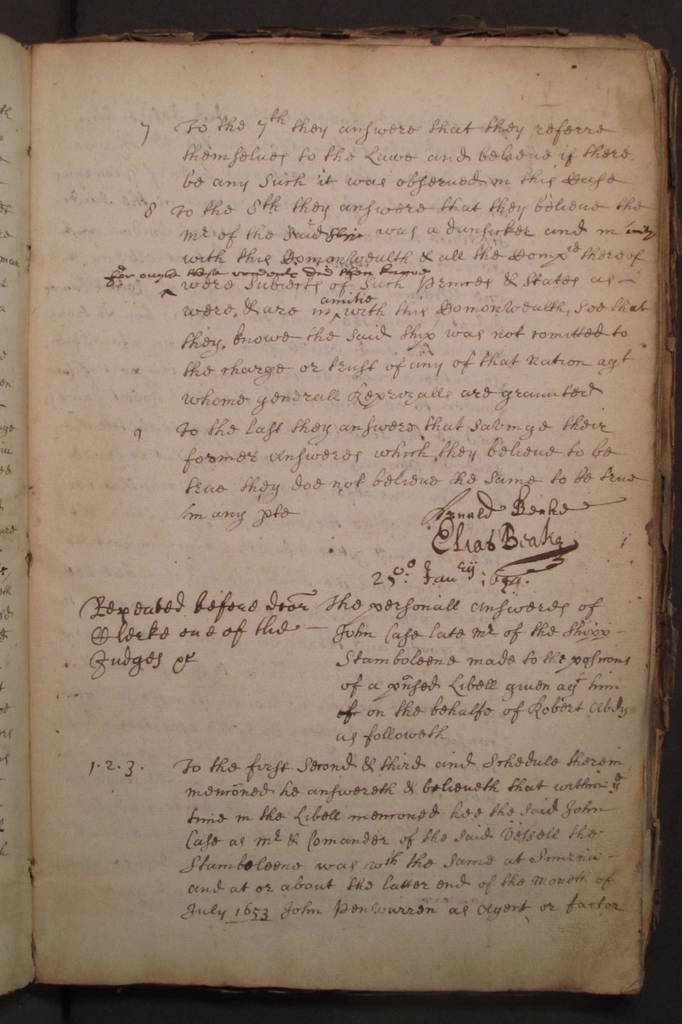 7 To the 7th they answere that they referre
themselves to the Lawe and beleeve if there
be any such it was observed in this Case
8 To the 8th they answere that they believe the
Mr of the said Shipp was a dunkirker and in
with this Comonwealth & all the Comp thereof
for ought these rendents did then knowe
were Subiects of such Princes & States as
were, & are in amitie with this Comonwealth, soe that
they knowe the said ship was not comitted to
the charge or trust of any of that nation agt
whome generall Reprizalls are graunted
9 To the last they answere that savinge their
former answeres which they believe to be
true they doe not believe the same to be true
in any pte
Arnald Beake
Elias Beake
25o Janurij 1654.
Repeated before docor
Clerke one of the
Judges &c
The personall answeres of
John Case late Mr of the Shipp
Stamboleene made to the positions
of a pnsed Libell given agt him
on the behalfe of Robert Abdy
as followeth
1. 2. 3. To the first Second & third and Schedule therein
menconed he answereth & believeth that within ye
time in the Libell menconed hee the said John
Case as Mr & Comander of the said Vessell the
Stamboleene was wth the same at Smirnia
and at or about the latter end of the Moneth of
July 1653 John Penwarren as agent or factor